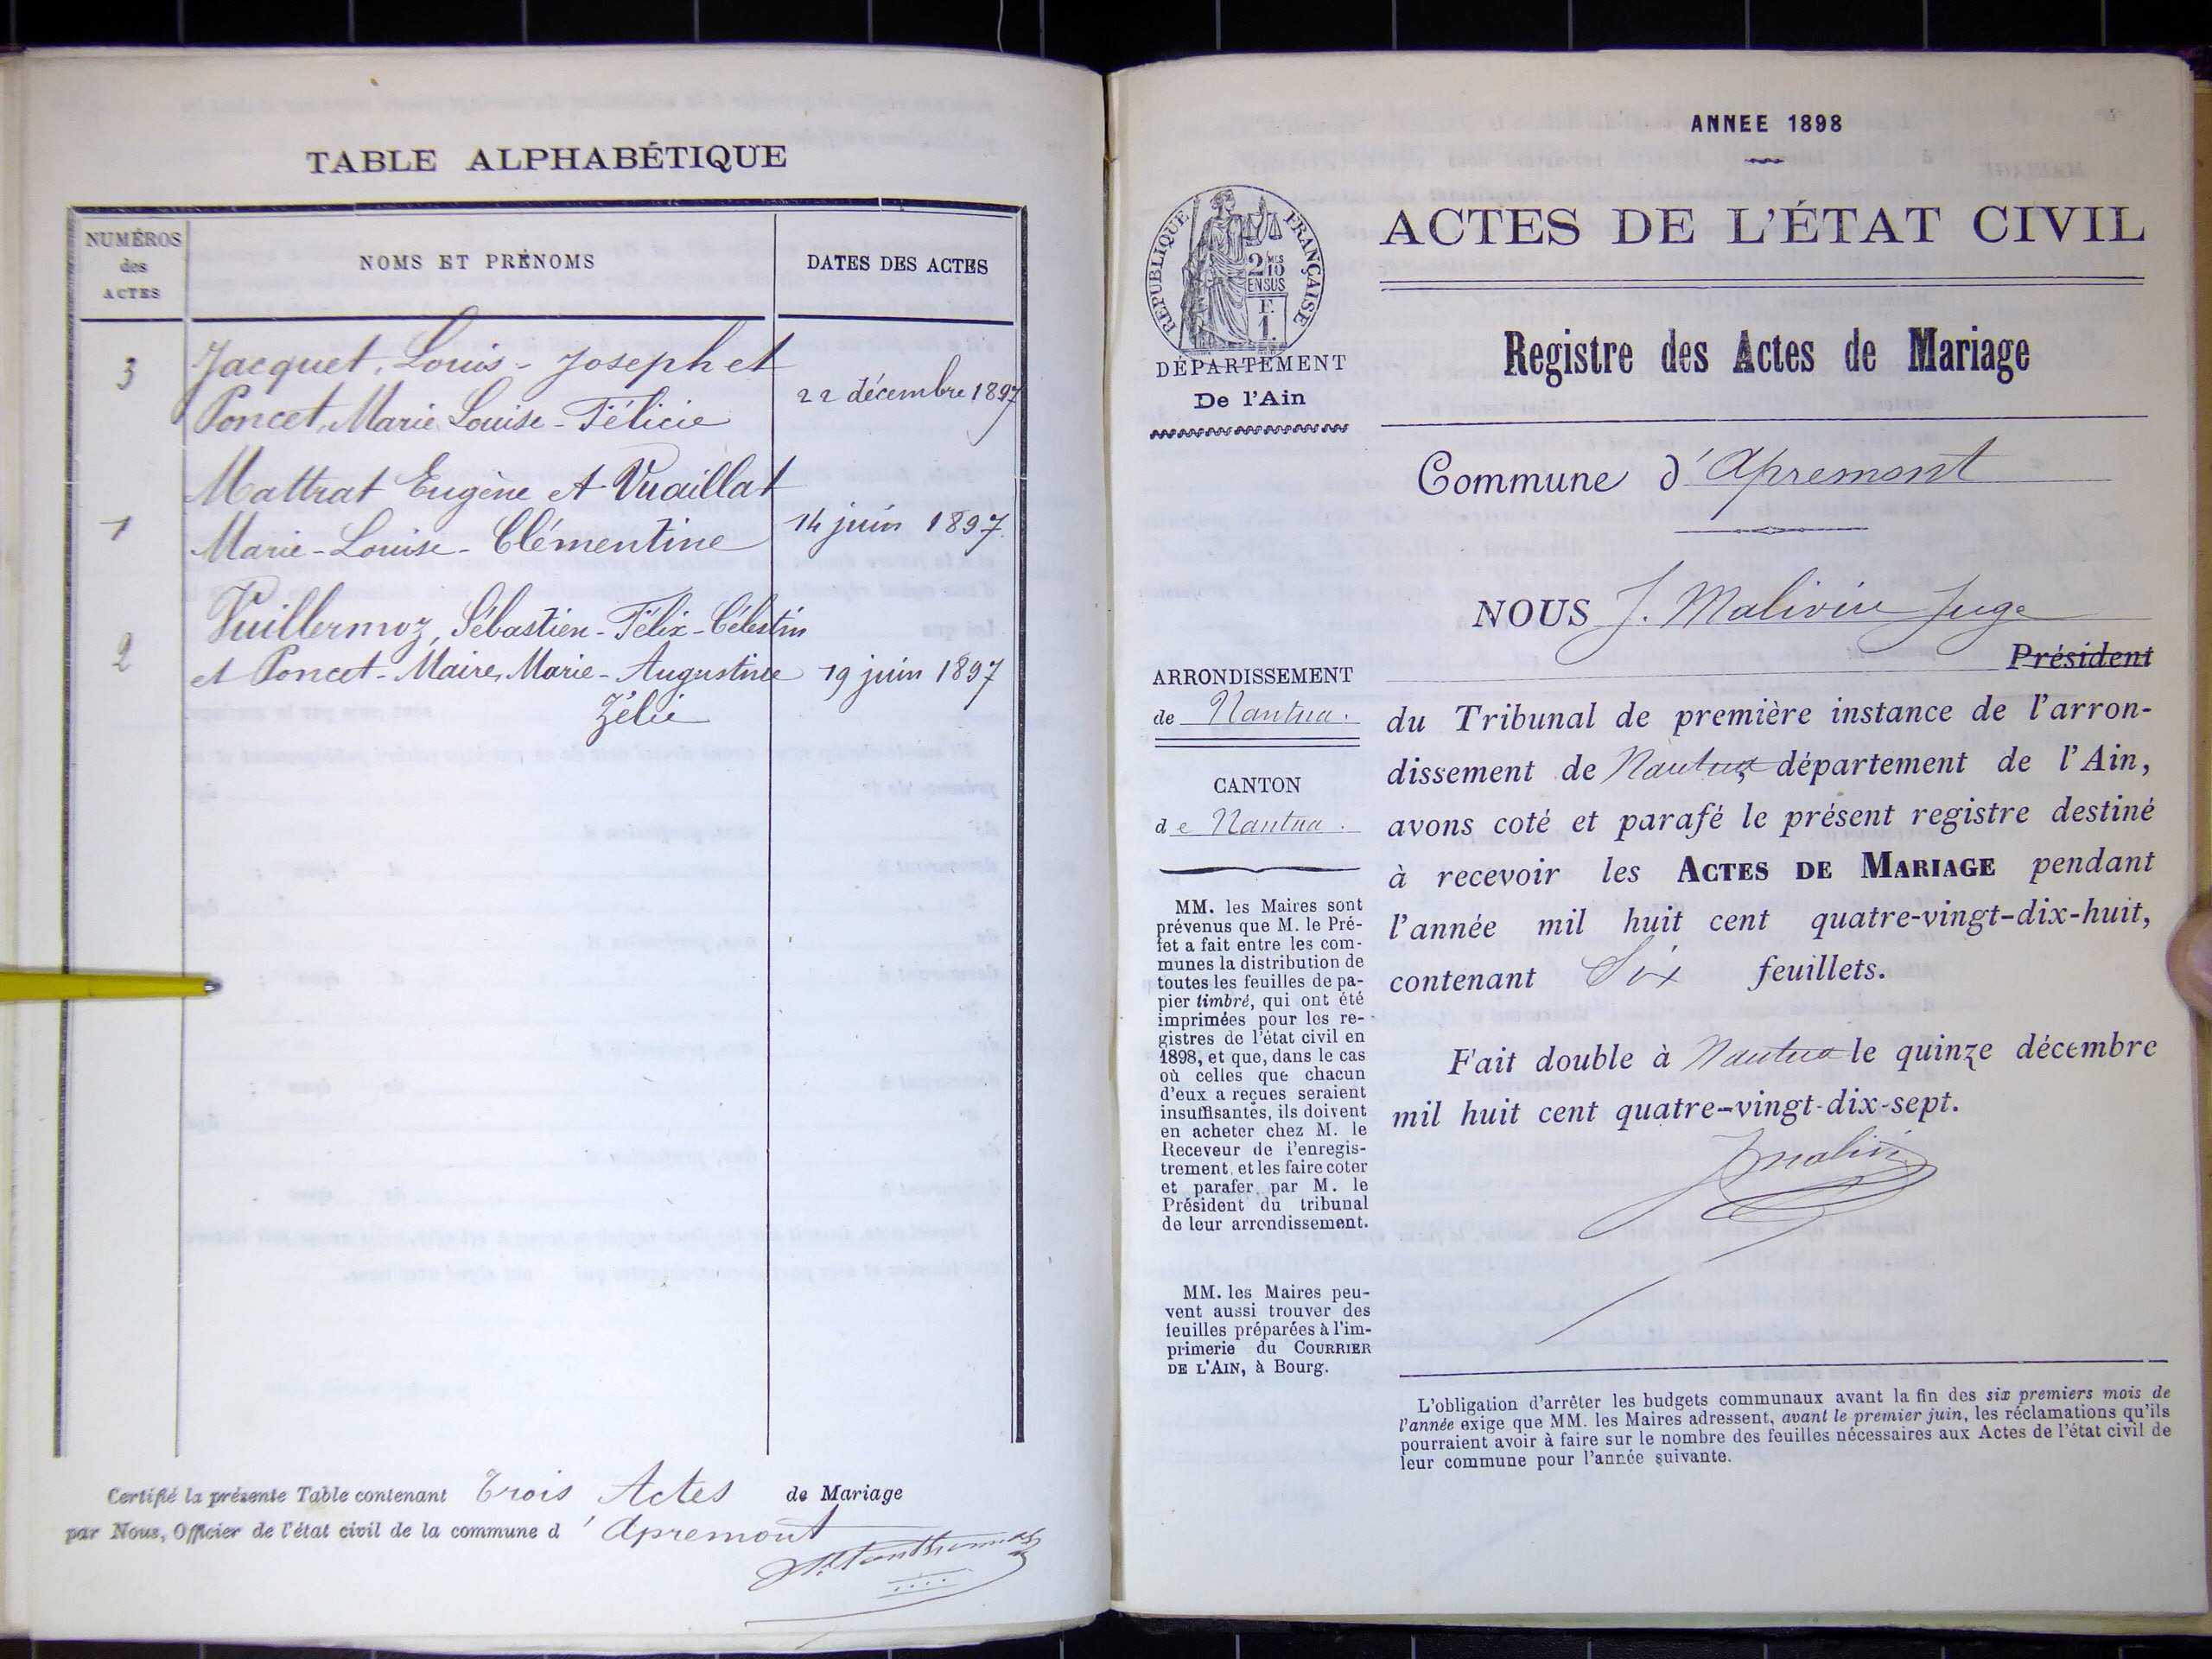 TABLE ALPHABÉTIQUE
NUMÉROS
des
ACTES
NOMS ET PRÉNOMS
DATES DES ACTES
3
Jacquet, Louis-Joseph et
Poncet, Marie Louise-Félicie
22 décembre 1897
1
Mattrat Eugène et Vuaillat
Marie-Louise-Clémentine
14 juin 1897.
2
Vuillermoz, Sébastien-Félix-Célestin
et Poncet-Maire, Marie-Augustine
Zélie
19 juin 1897
Certifié la présente Table contenant Trois Actes de Mariage
par Nous, Officier de l'état civil de la commune d'Apremont
ANNEE 1898
REPUBLIQUE FRANÇAISE
2 MES
10
EN SUS
F.
1.
DÉPARTEMENT
De l'Ain
ACTES DE L'ÉTAT CIVIL
Registre des Actes de Mariage
Commune d'Apremont
ARRONDISSEMENT
de Nantua.
CANTON
de Nantua.
MM. les Maires sont
prévenus que M. le Pré-
fet a fait entre les com-
munes la distribution de
toutes les feuilles de pa-
pier timbré, qui ont été
imprimées pour les re-
gistres de l'état civil en
1898, et que, dans le cas
où celles que chacun
d'eux a reçues seraient
insuffisantes, ils doivent
en acheter chez M. le
Receveur de l'enregis-
trement, et les faire coter
et parafer par M. le
Président du tribunal
de leur arrondissement.
MM. les Maires peu-
vent aussi trouver des
feuilles préparées à l'im-
primerie du COURRIER
DE L'AIN, à Bourg.
NOUS J. Malivin Juge
Président
du Tribunal de première instance de l'arron-
dissement de Nantua, département de l'Ain,
avons coté et parafé le présent registre destiné
à recevoir les ACTES DE MARIAGE pendant
l'année mil huit cent quatre-vingt-dix-huit,
contenant Six feuillets.
Fait double à Nantua le quinze décembre
mil huit cent quatre-vingt-dix-sept.
L'obligation d'arrêter les budgets communaux avant la fin des six premiers mois de
l'année exige que MM. les Maires adressent, avant le premier juin, les réclamations qu'ils
pourraient avoir à faire sur le nombre des feuilles nécessaires aux Actes de l'état civil de
leur commune pour l'année suivante.